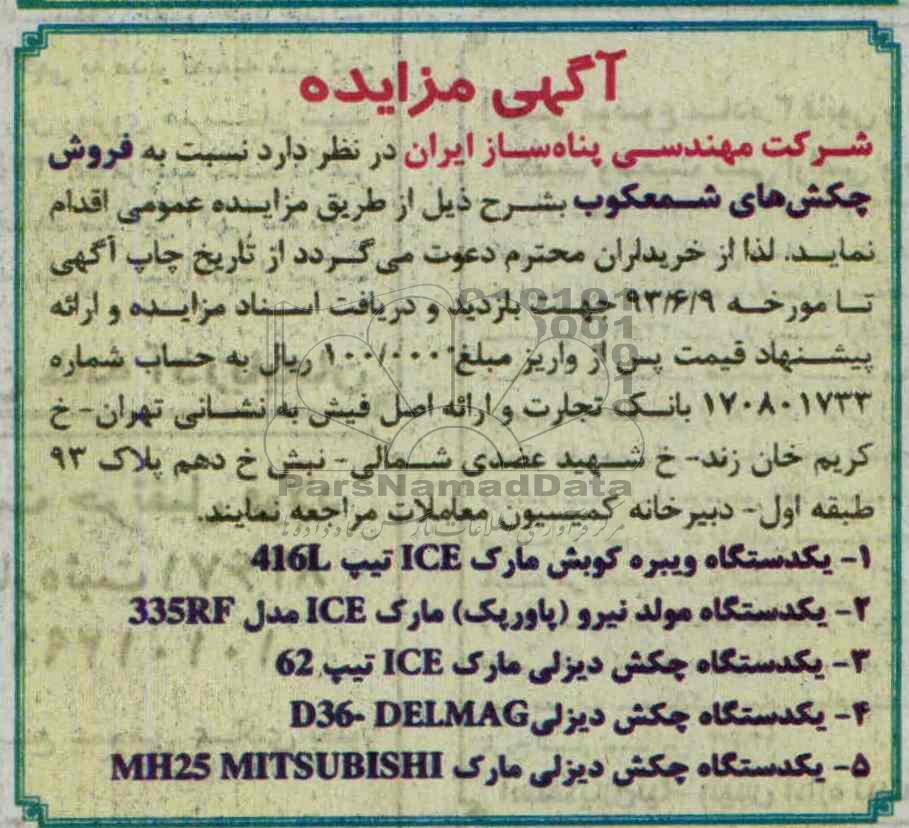 آگهی مزایده
شرکت مهندسی پناه‌ساز ایران در نظر دارد نسبت به فروش
چکش‌های شمعکوب بشرح ذیل از طریق مزایده عمومی اقدام
نماید. لذا از خریداران محترم دعوت می‌گردد از تاریخ چاپ آگهی
تا مورخه ۹۳/۶/۹ جهت بازدید و دریافت اسناد مزایده و ارائه
پیشنهاد قیمت پس از واریز مبلغ ۱۰۰/۰۰۰ ریال به حساب شماره
۱۷۰۸۰۱۷۳۳ بانک تجارت و ارائه اصل فیش به نشانی تهران- خ
کریم خان زند- خ شهید عضدی شمالی- نبش خ دهم پلاک ۹۳
ParsNamadData
طبقه اول- دبیرخانه کمیسیون معاملات مراجعه نمایند.
۱- یکدستگاه ویبره کوبش مارک ICE تیپ 416L
۲- یکدستگاه مولد نیرو (پاورپک) مارک ICE مدل 335RF
۳- یکدستگاه چکش دیزلی مارک ICE تیپ 62
۴- یکدستگاه چکش دیزلی D36- DELMAG
۵- یکدستگاه چکش دیزلی مارک MH25 MITSUBISHI